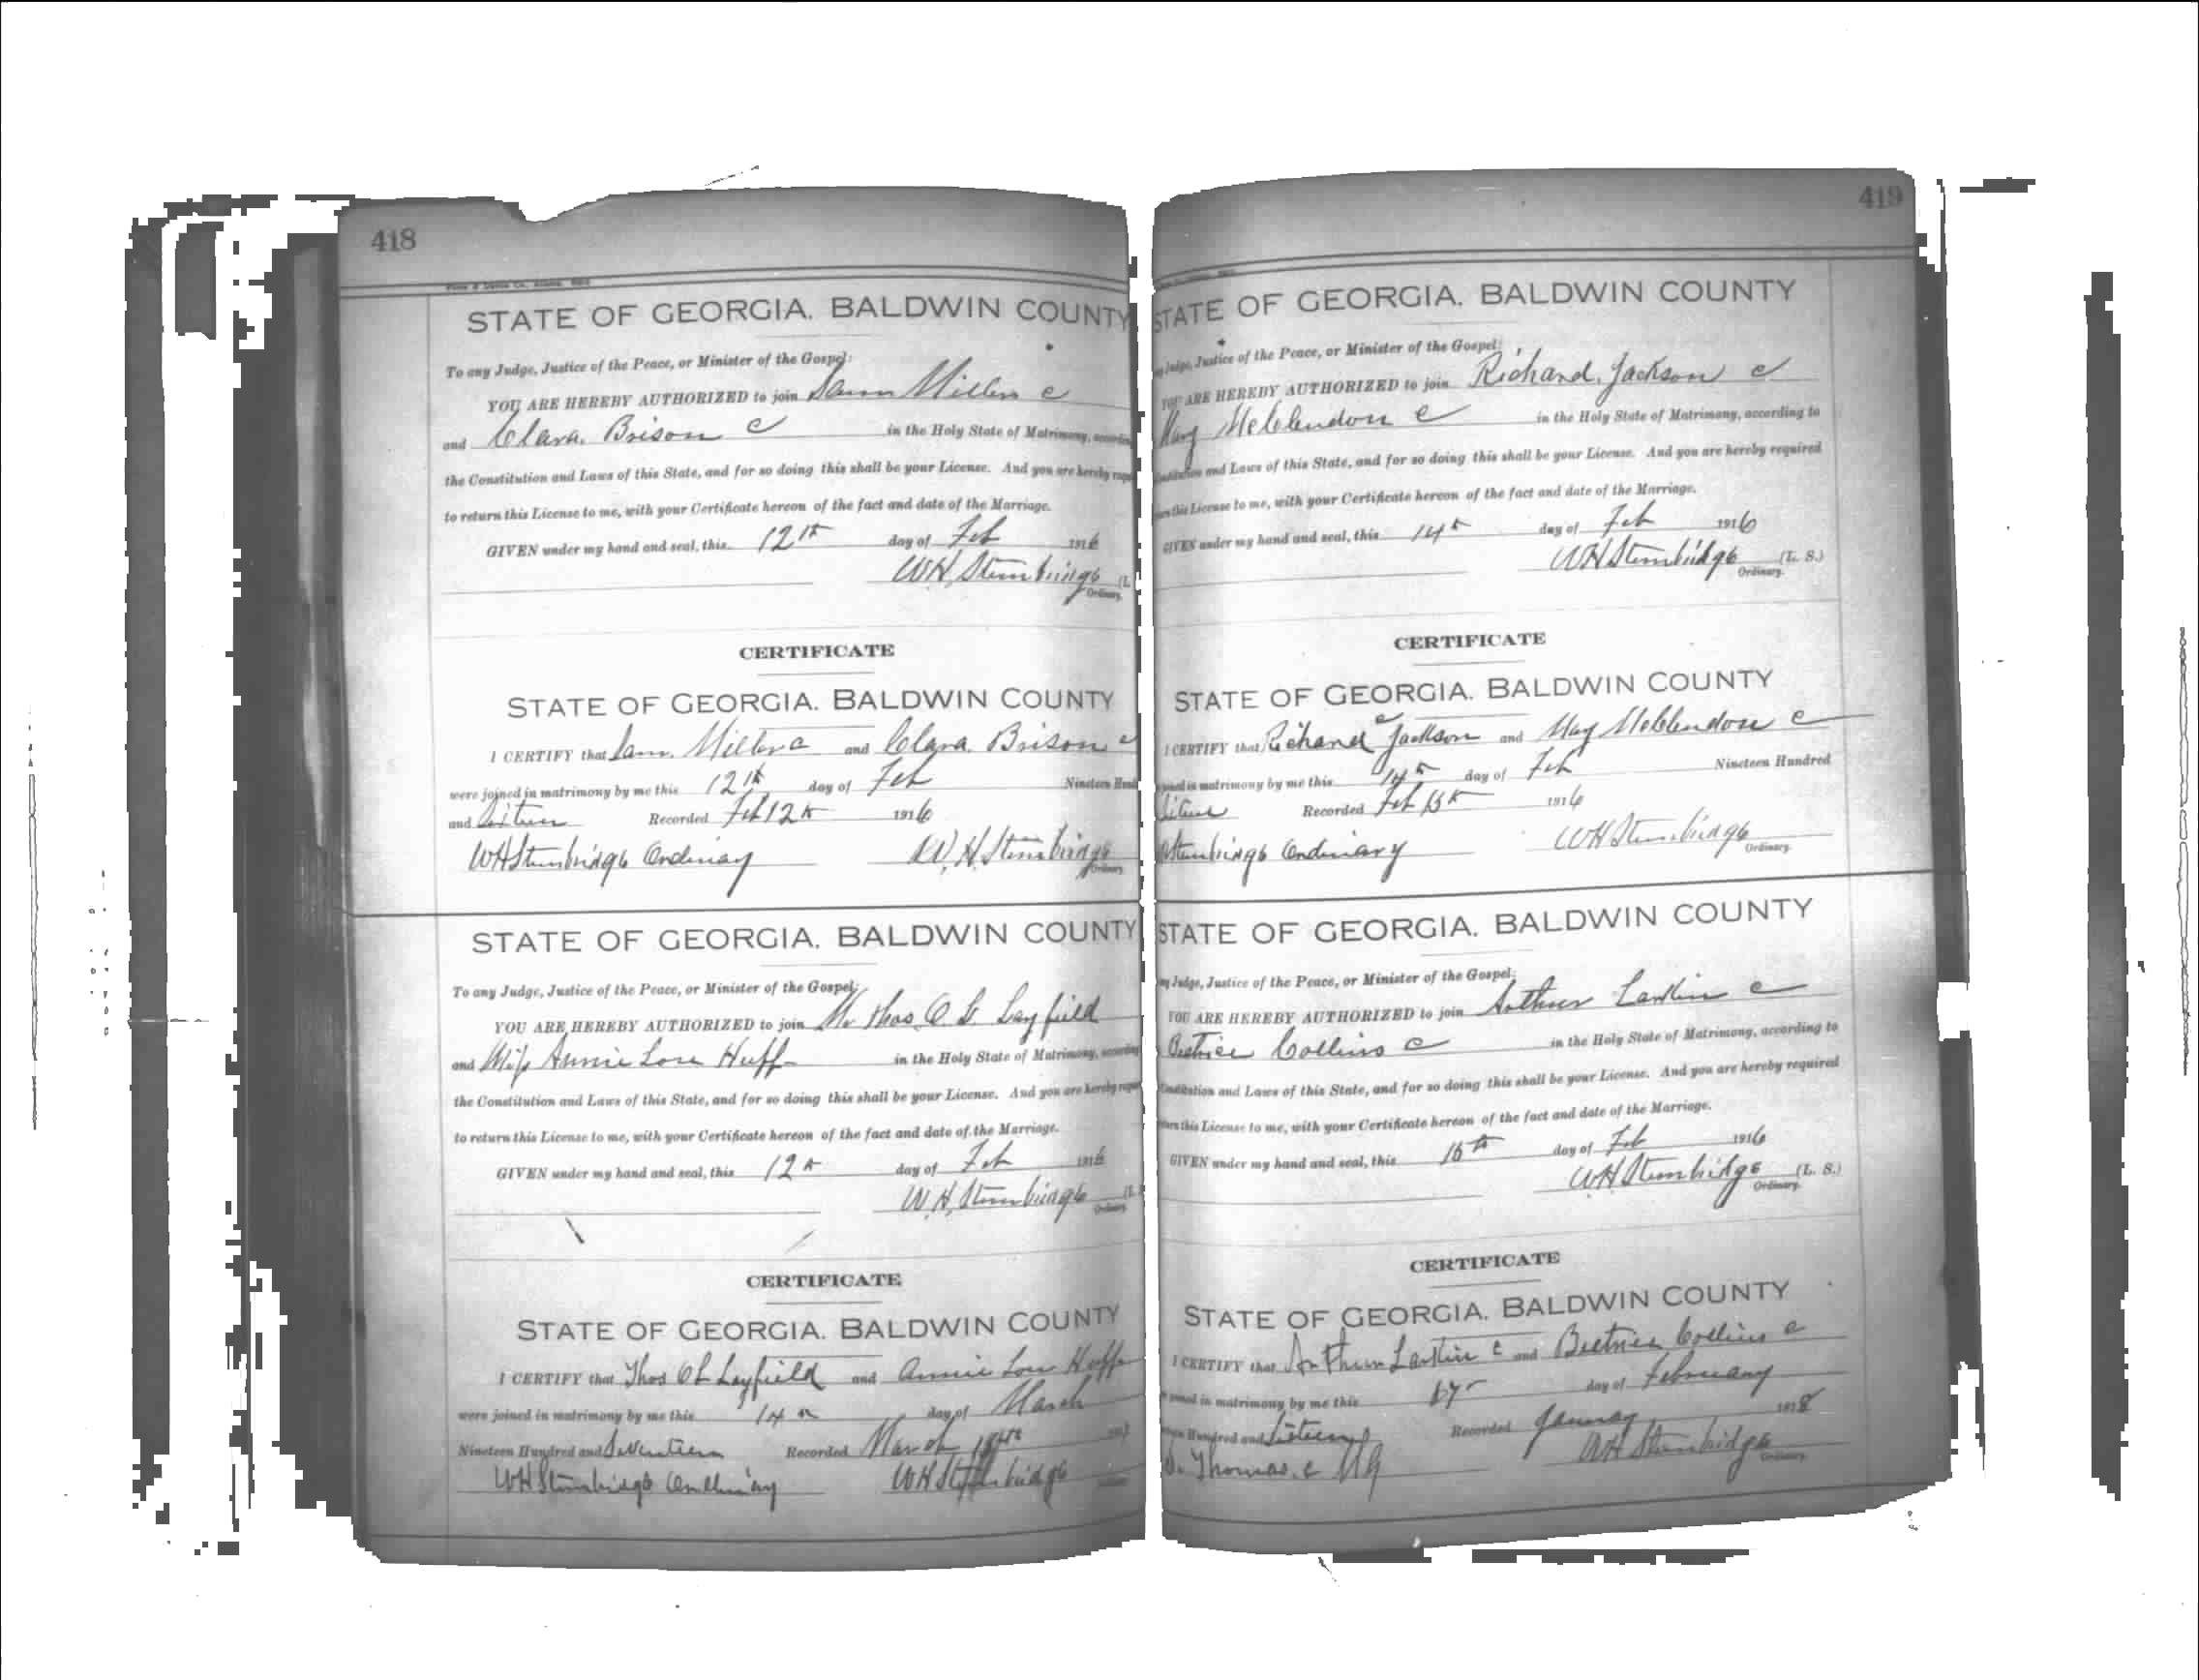 418
STATE OF GEORGIA. BALDWIN COUNTY
To any Judge, Justice of the Peace, or Minister of the Gospel:
YOU ARE HEREBY AUTHORIZED to join Sam Miller c
and Clara Brison c in the Holy State of Matrimony, according
the Constitution and Laws of this State, and for so doing this shall be your License. And you are hereby
to return this License to me, with your Certificate hereon of the fact and date of the Marriage.
GIVEN under my hand and seal, this 12th day of Feb 1916
W.H. Stembridge (L.
Ordinary.
CERTIFICATE
STATE OF GEORGIA. BALDWIN COUNTY
I CERTIFY that Sam Miller c and Clara Brison c
were joined in matrimony by me this 12th day of Feb Nineteen
and Sixteen Recorded Feb 12th 1916
WH Stembridge Ordinary W.H. Stembridge
Ordinary
STATE OF GEORGIA. BALDWIN COUNTY
To any Judge, Justice of the Peace, or Minister of the Gospel:
YOU ARE HEREBY AUTHORIZED to join Mr Thos. O. L. Layfield
and Miss Annie Lou Huff in the Holy State of Matrimony, according
the Constitution and Laws of this State, and for so doing this shall be your License. And you are hereby
to return this License to me, with your Certificate hereon of the fact and date of the Marriage.
GIVEN under my hand and seal, this 12th day of Feb 1916
W.H. Stembridge
Ordinary
CERTIFICATE
STATE OF GEORGIA. BALDWIN COUNTY
I CERTIFY that Thos O L Layfield and Annie Lou Huff
were joined in matrimony by me this 14th day of March
Nineteen Hundred and Seventeen Recorded March
WH Stembridge Ordinary WH Stembridge
419
STATE OF GEORGIA. BALDWIN COUNTY
Judge, Justice of the Peace, or Minister of the Gospel:
YOU ARE HEREBY AUTHORIZED to join Richard Jackson c
May McClendon c in the Holy State of Matrimony, according to
and Laws of this State, and for so doing this shall be your License. And you are hereby required
this License to me, with your Certificate hereon of the fact and date of the Marriage.
GIVEN under my hand and seal, this 14th day of Feb 1916
WH Stembridge (L. S.)
Ordinary.
CERTIFICATE
STATE OF GEORGIA. BALDWIN COUNTY
I CERTIFY that Richard Jackson c and May McClendon c
in matrimony by me this 14th day of Feb Nineteen Hundred
Sixteen Recorded Feb 15th 1916
Stembridge Ordinary WH Stembridge
Ordinary.
STATE OF GEORGIA. BALDWIN COUNTY
Judge, Justice of the Peace, or Minister of the Gospel:
YOU ARE HEREBY AUTHORIZED to join Arthur Lawlin c
Beatrice Collins c in the Holy State of Matrimony, according to
and Laws of this State, and for so doing this shall be your License. And you are hereby required
this License to me, with your Certificate hereon of the fact and date of the Marriage.
GIVEN under my hand and seal, this day of Feb 1916
WH Stembridge (L. S.)
Ordinary.
CERTIFICATE
STATE OF GEORGIA. BALDWIN COUNTY
I CERTIFY that Arthur c and Beetrice Collins c
in matrimony by me this 17 day of February
Hundred and Sixteen Recorded January 1918
Thomas. c M G WH Stembridge
Ordinary